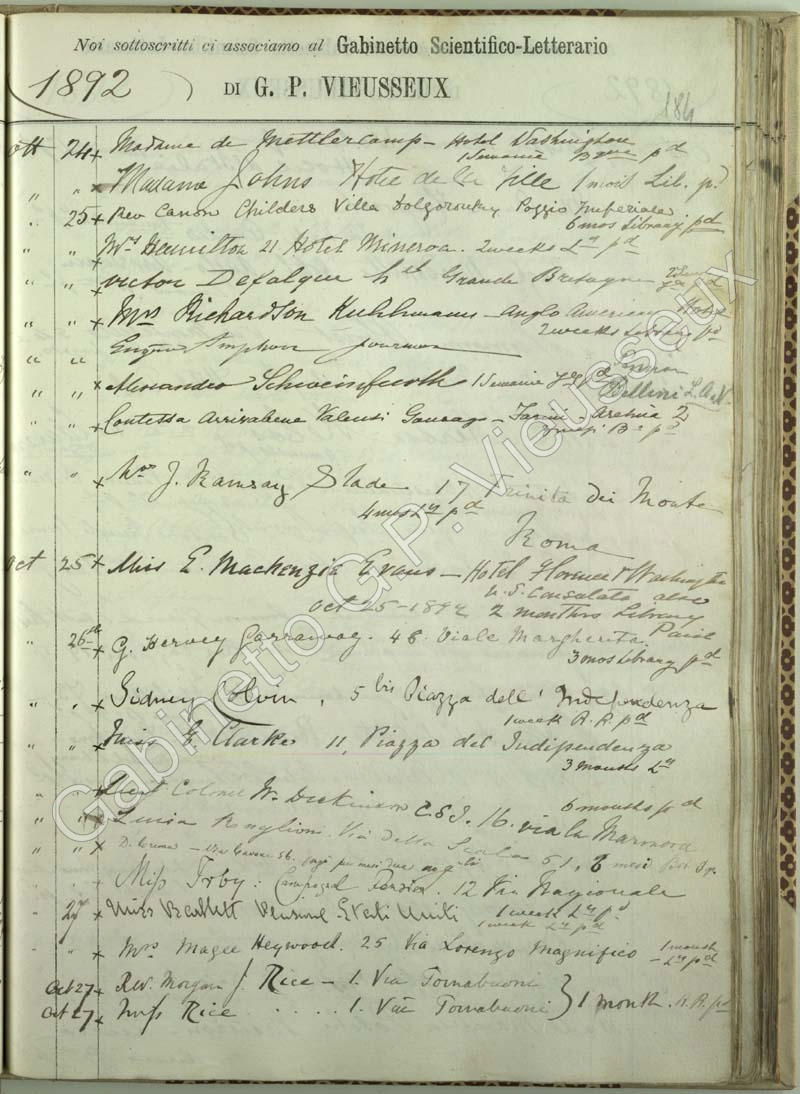 Noi sottoscritti ci associamo al Gabinetto Scientifico-Letterario
1892 DI G. P. VIEUSSEUX
184
Ott 24 x Madame de Mettlercamp - Hotel Washington
1 Semaine pd
" " x Madame Johns Hotel de la Ville 1 mois Lib. pd
" 25 x Rev Canon Childers Villa Dolgorouky Poggio Imperiale
6 mos Library pd
" " x Mrs Hamilton 21 Hotel Minerva. 2 weeks Ly pd
" " x Victor Defalque htl Grande Bretagne
" " x Mrs Richardson Kuhlmann - Anglo American Hotel
2 weeks Library pd
" "
" " x Alessandro Schweinfurth 1 Semaine pd Pension
Bellini
" " x Contessa Arrivabene Valenti Gonzaga -
pd
" " x Mrs J. Ramsay Slade 17 Trinità dei Monti
4 mos Ly pd
Roma
Oct 25 x Miss E. Mackenzie Evans - Hotel Florence & Washington
U.S. Consulate also
Oct 25 - 1892 2 months Library
Paid
" 26th x G. Hervey Garraway. 48 Viale Margherita.
3 mos Library pd
" " x Sidney Colvin, 5 bis Piazza dell' Independenza
1 week R.R. pd
" " x Miss E. Clarke 11, Piazza del Indipendenza
3 months Ly
" " Lieut Colonel Wm Dickinson C.S.I. 16. via la Marmora
6 months pd
" " x Luisa Via della Scala 51,
" " x
" Miss Irby: 12 Via Nazionale
" 27 x Miss Bartlett Pensione Stati Uniti 1 week Ly pd
1 week Ly pd
" " x Mrs Magee Heywood. 25 Via Lorenzo Magnifico 1 month
- Ly pd
Oct 27 x Rev. Morgan J. Rice - 1. Via Tornabuoni
Oct 27 x Miss Rice . . . . . 1. Via Tornabuoni } 1 month. R.R. pd
Gabinetto G.P. Vieusseux